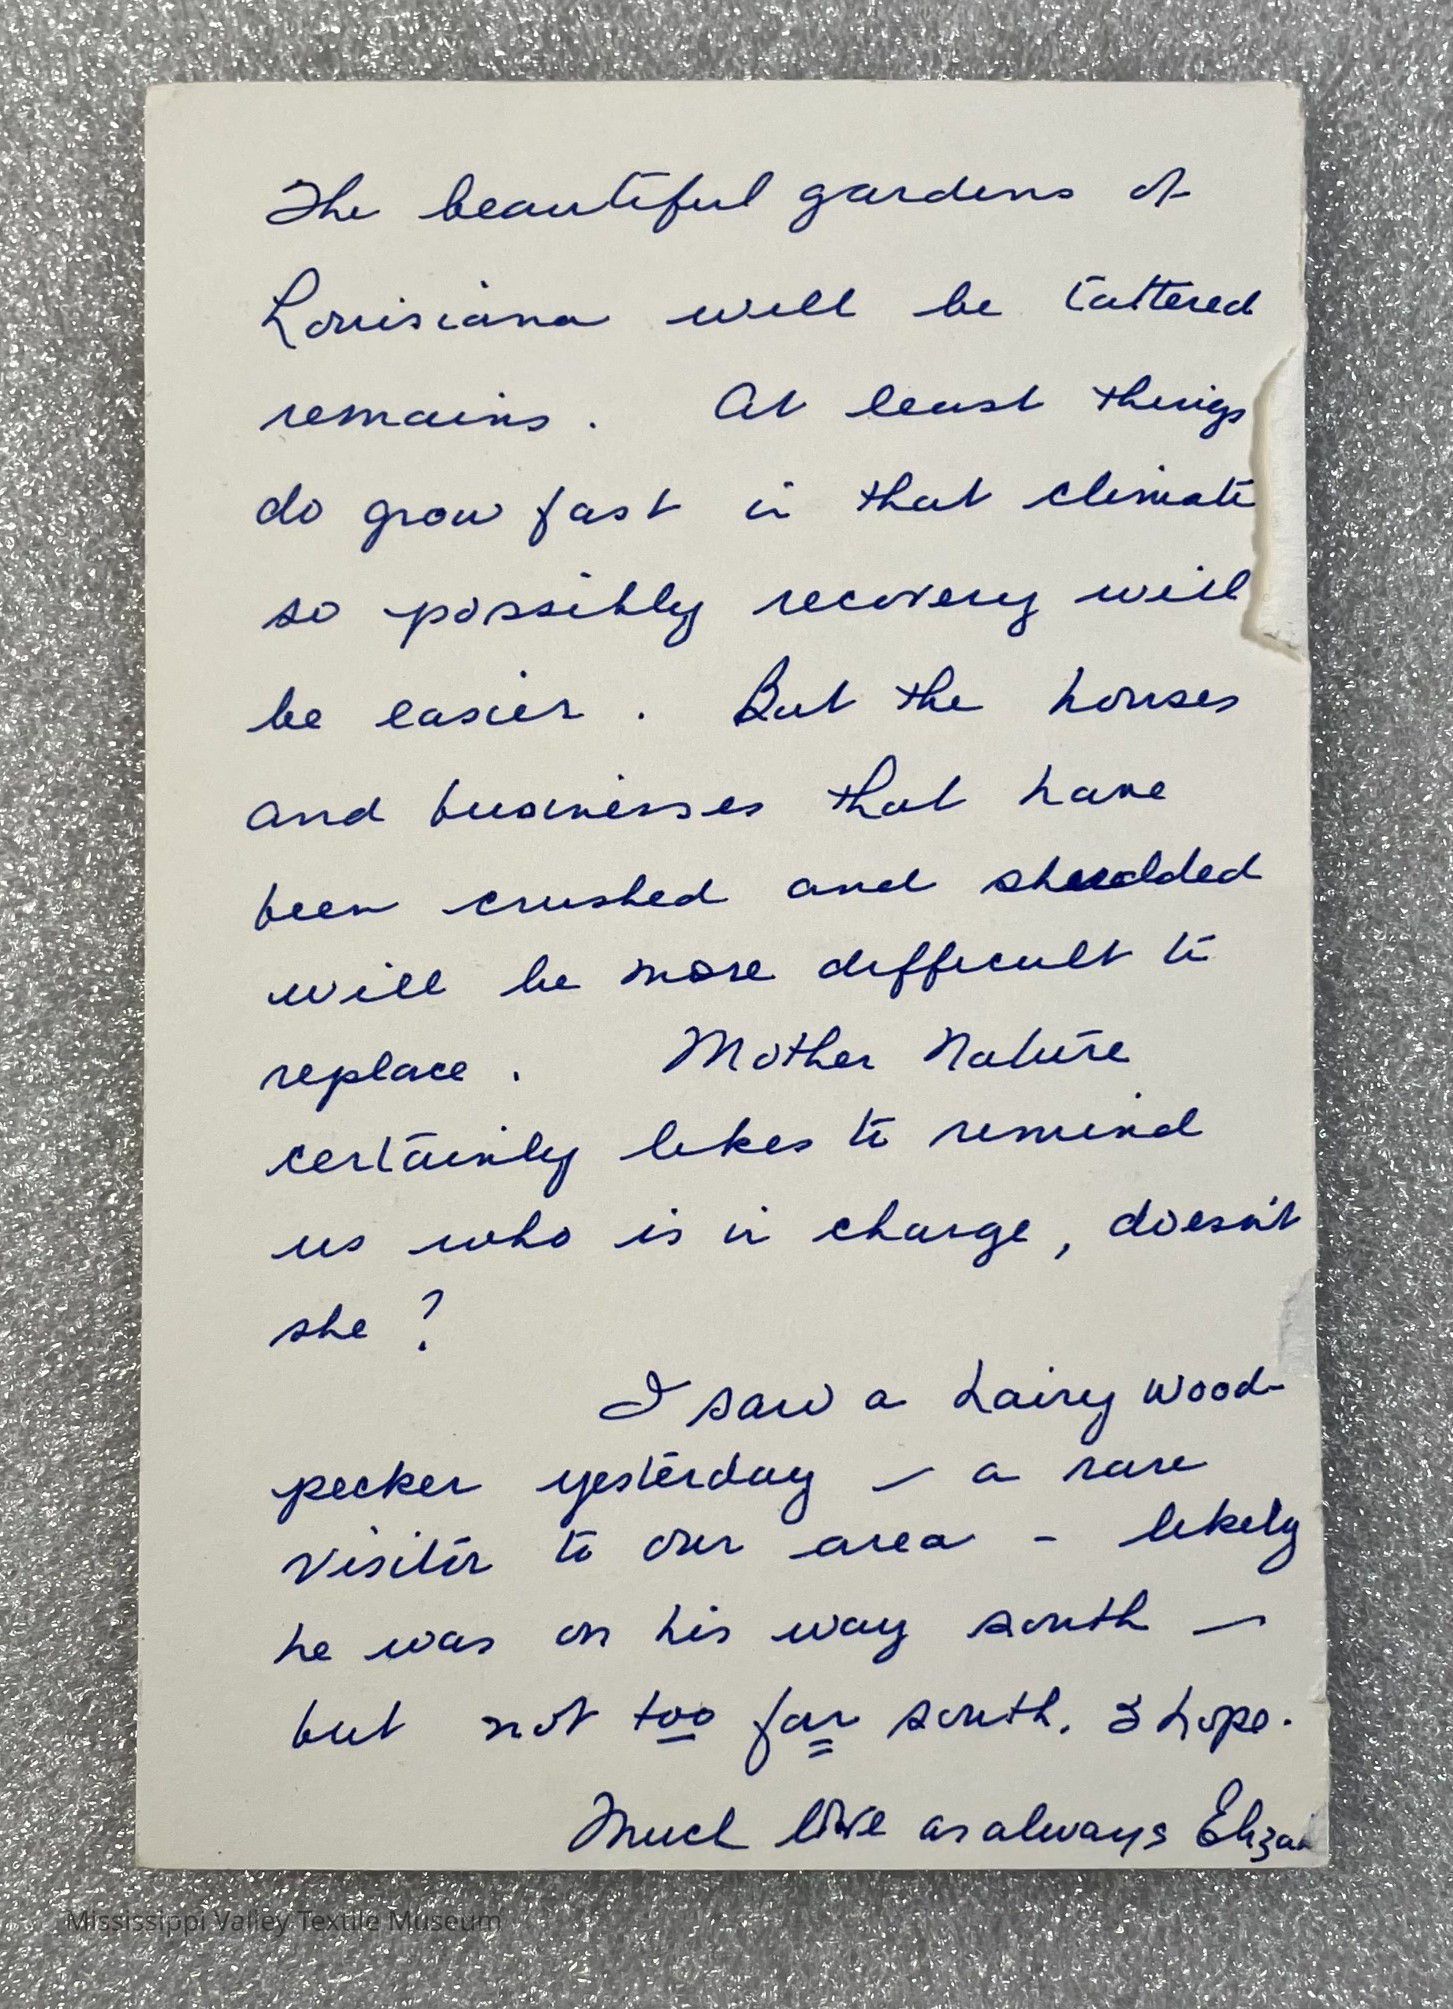 The beautiful gardens of
Louisiana will be tattered
remains. At least things
do grow fast in that climate
so possibly recovery will
be easier. But the houses
and businesses that have
been crushed and shredded
will be more difficult to
replace. Mother Nature
certainly likes to remind
us who is in charge, doesn't
she?
I saw a hairy wood-
pecker yesterday – a rare
visitor to our area – likely
he was on his way south –
but not too far south, I hope.
Much love as always Eliza
Mississippi Valley Textile Museum